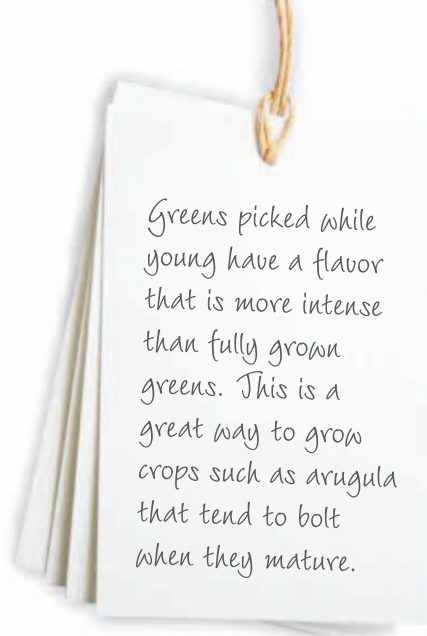 Greens picked while
young have a flavor
that is more intense
than fully grown
greens. This is a
great way to grow
crops such as arugula
that tend to bolt
when they mature.